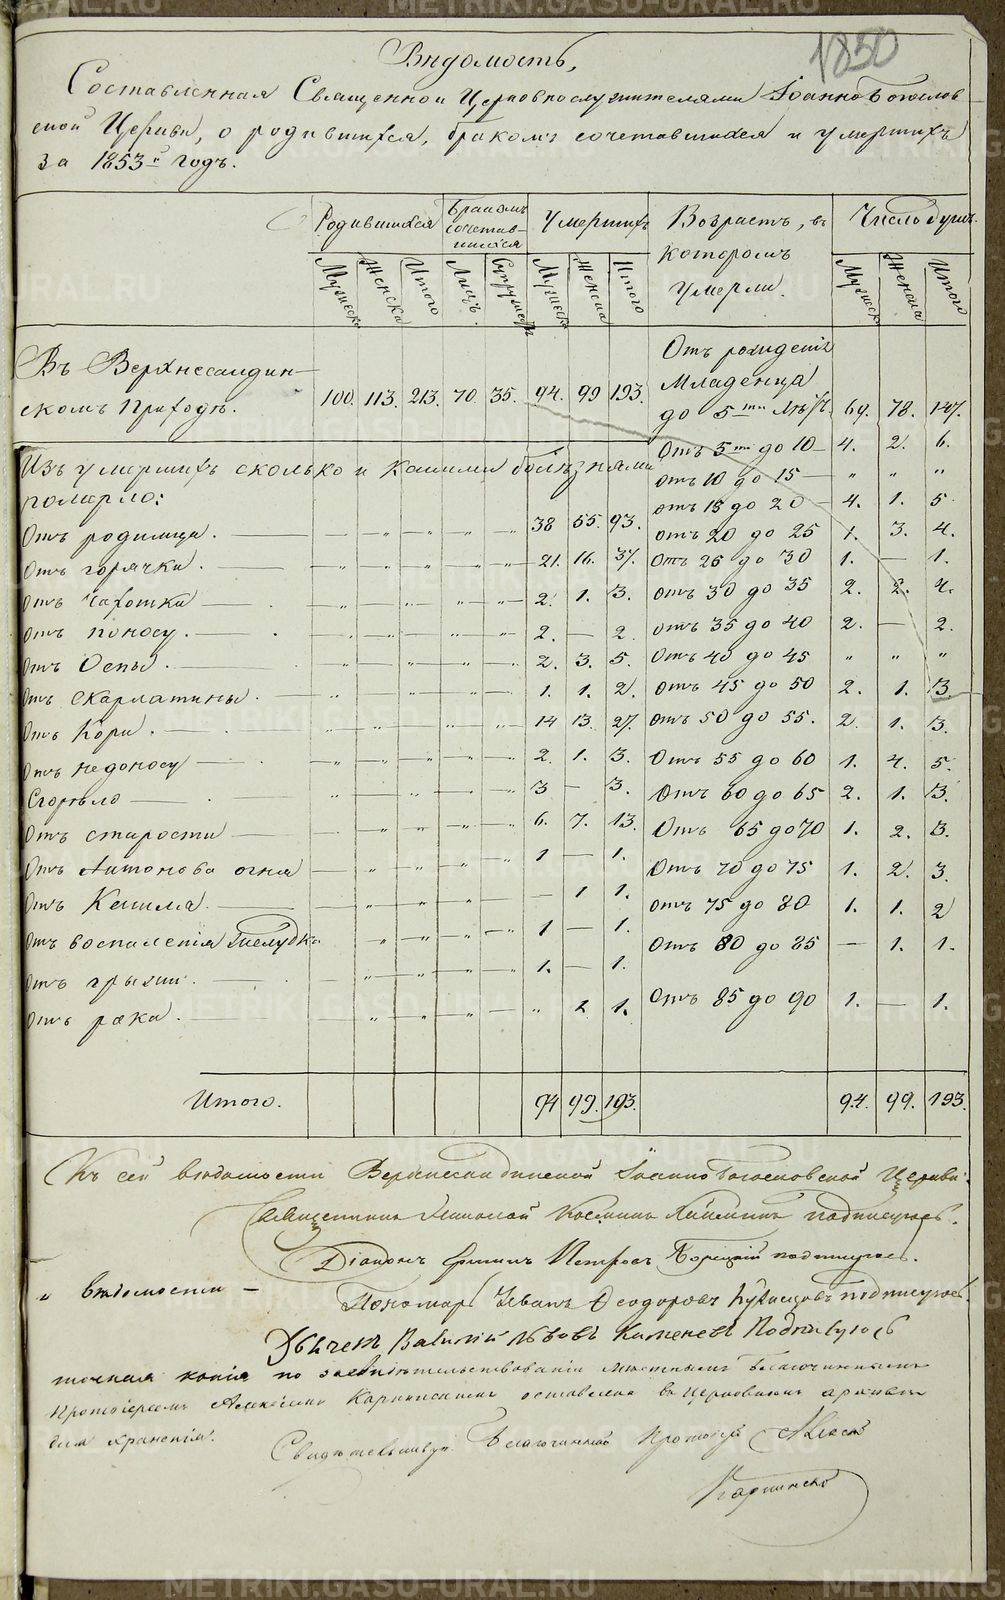 1850
Вѣдомость,
Составленная Священно и Церковнослужителями Іоанно Богослов
ской Церкви, о родившихся, бракомъ сочетавшихся и умершихъ
за 1853й годъ.
Родившихся Бракомъ сочетав- шихся Умершихъ Возрастъ, въ которомъ умерли. Число душъ.
Мужеска Женска Итого Лицъ. Супружествъ Мужеска Женска Итого Мужеска Женска Итого
Въ Верхнесалдин-
скомъ Приходѣ. 100. 113. 213. 70 35. 94. 99 193.
Отъ рожденія
Младенца
до 5ти Лѣтъ. 69. 78. 147.
Изъ умершихъ сколько и какими болѣзнями
померло:
Отъ 5ти до 10 — 4. 2. 6.
отъ 10 до 15 — " " "
отъ 15 до 20 — 4. 1. 5.
Отъ родимца. 38 55. 93. отъ 20 до 25 1. 3. 4.
Отъ горячки. 21. 16. 37. Отъ 25 до 30 1. — 1.
Отъ Чахотки 2. 1. 3. отъ 30 до 35 2. 2. 4.
Отъ поносу. 2. — 2. отъ 35 до 40 2. — 2.
Отъ Оспы. 2. 3. 5. Отъ 40 до 45 " " "
Отъ Скарлатины. 1. 1. 2. отъ 45 до 50 2. 1. 3.
Отъ Кори. 14 13. 27. отъ 50 до 55. 2. 1. 3.
Отъ недоносу 2. 1. 3. Отъ 55 до 60 1. 4. 5.
Сгорѣло 3 — 3. Отъ 60 до 65 2. 1. 3.
Отъ старости 6. 7. 13. Отъ 65 до 70 1. 2. 3.
Отъ Антонова огня 1 — 1. Отъ 70 до 75 1. 2. 3.
Отъ Кашля — 1 1. отъ 75 до 80 1. 1. 2
Отъ воспаленія Желудка 1 — 1. Отъ 80 до 85 — 1. 1.
Отъ грыжи. 1. — 1.
Отъ рака. " 1 1. Отъ 85 до 90 1. — 1.
Итого. 94 99. 193. 94. 99. 193.
Къ сей вѣдомости Верхнесалдинской Іоанно Богословской Церкви
Священникъ Николай подписуюсь.
Діаконъ Петровъ подписуюсь.
" вѣдомости — Пономарь Иванъ Ѳеодоровъ Кузнецовъ подписуюсь.
Дьячекъ Василій Львовъ Каменевъ Подписуюсь
точная копія по засвидѣтельствованіи мѣстнымъ Благочиннымъ
Протоіереемъ Алексіемъ Карпинскимъ оставлена въ Церковномъ архивѣ
для храненія.
Свидѣтельствую Благочинный Протоіерей Алексій
Карпинскій
METRIKI.GASO-URAL.RU